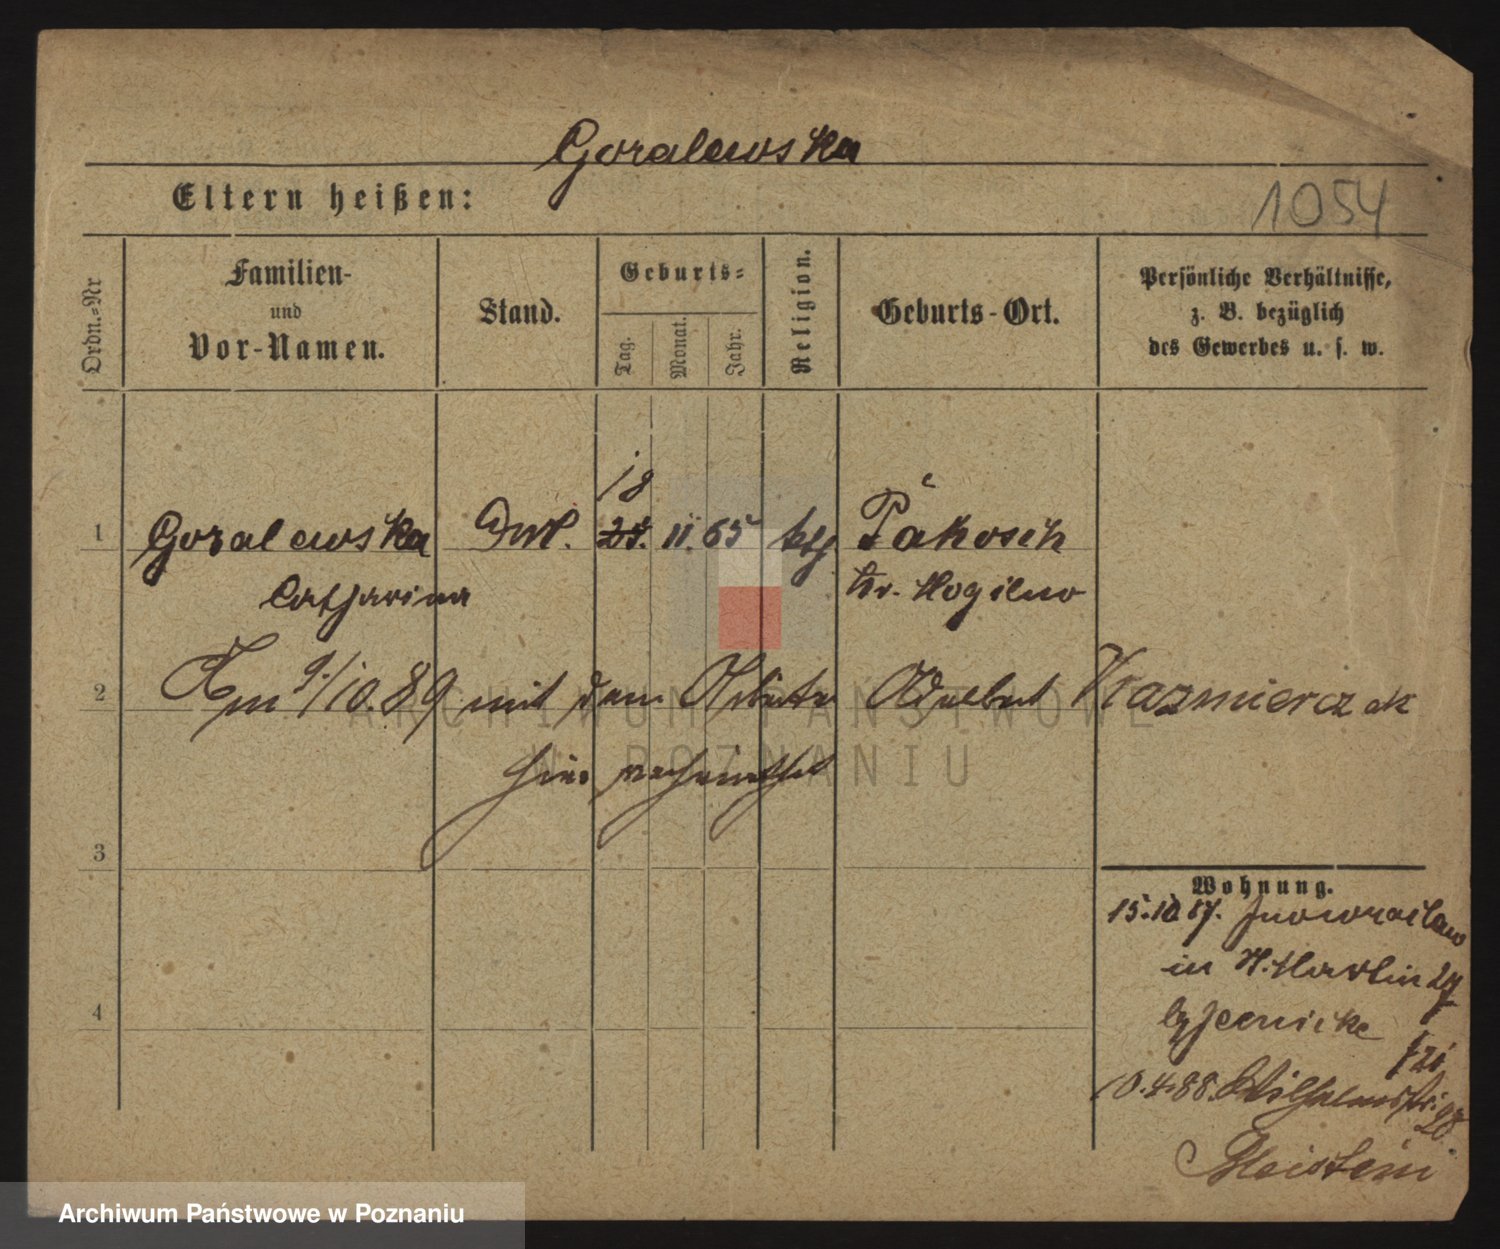 Goralewska
Eltern heißen:
1054
Ordn.-Nr
Familien-
und
Vor-Namen.
Stand.
Geburts-
Tag.
Monat.
Jahr.
Religion.
Geburts-Ort.
Persönliche Verhältnisse,
z. B. bezüglich
des Gewerbes u. s. w.
18
1 Goralewska 24. 11. 65 kth Pakosch
Catharina Kr. Mogilno
2 Am 9/10.89 mit dem Arbeiter Adalbert Kazmierczak
hier verheirathet
3
Wohnung.
15.10 87. Inowraclaw
in
4
10.4.88. Wilhelmstr. 28
ARCHIWUM PAŃSTWOWE
W POZNANIU
Archiwum Państwowe w Poznaniu